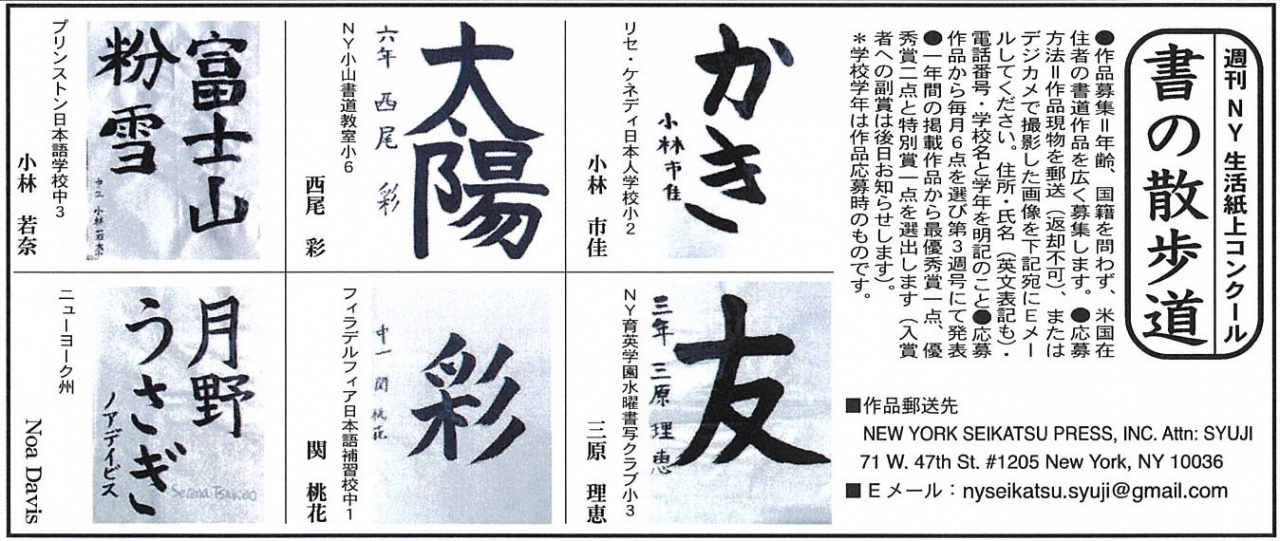 週刊NY生活紙上コンクール
書の散歩道
●作品募集＝年齢、国籍を問わず、米国在
住者の書道作品を広く募集します。●応募
方法＝作品現物を郵送（返却不可）、または
デジカメで撮影した画像を下記宛にEメー
ルしてください。住所・氏名（英文表記も）・
電話番号・学校名と学年を明記のこと●応募
作品から毎月６点を選び第３週号にて発表
●一年間の掲載作品から最優秀賞一点、優
秀賞二点と特別賞一点を選出します（入賞
者への副賞は後日お知らせします）。
＊学校学年は作品応募時のものです。
■作品郵送先
NEW YORK SEIKATSU PRESS, INC. Attn: SYUJI
71 W. 47th St. #1205 New York, NY 10036
■Eメール：nyseikatsu.syuji@gmail.com
かき
小林市佳
リセ・ケネディ日本人学校小２
小林 市佳
太陽
六年 西尾 彩
NY小山書道教室小６
西尾 彩
富士山
粉雪
中三 小林若奈
プリンストン日本語学校中３
小林 若奈
友
三年 三原理恵
NY育英学園水曜書写クラブ小３
三原 理恵
彩
中一 関 桃花
フィラデルフィア日本語補習校中１
関 桃花
月野
うさぎ
ノアデイビス
Serena Tsukino
ニューヨーク州
Noa Davis